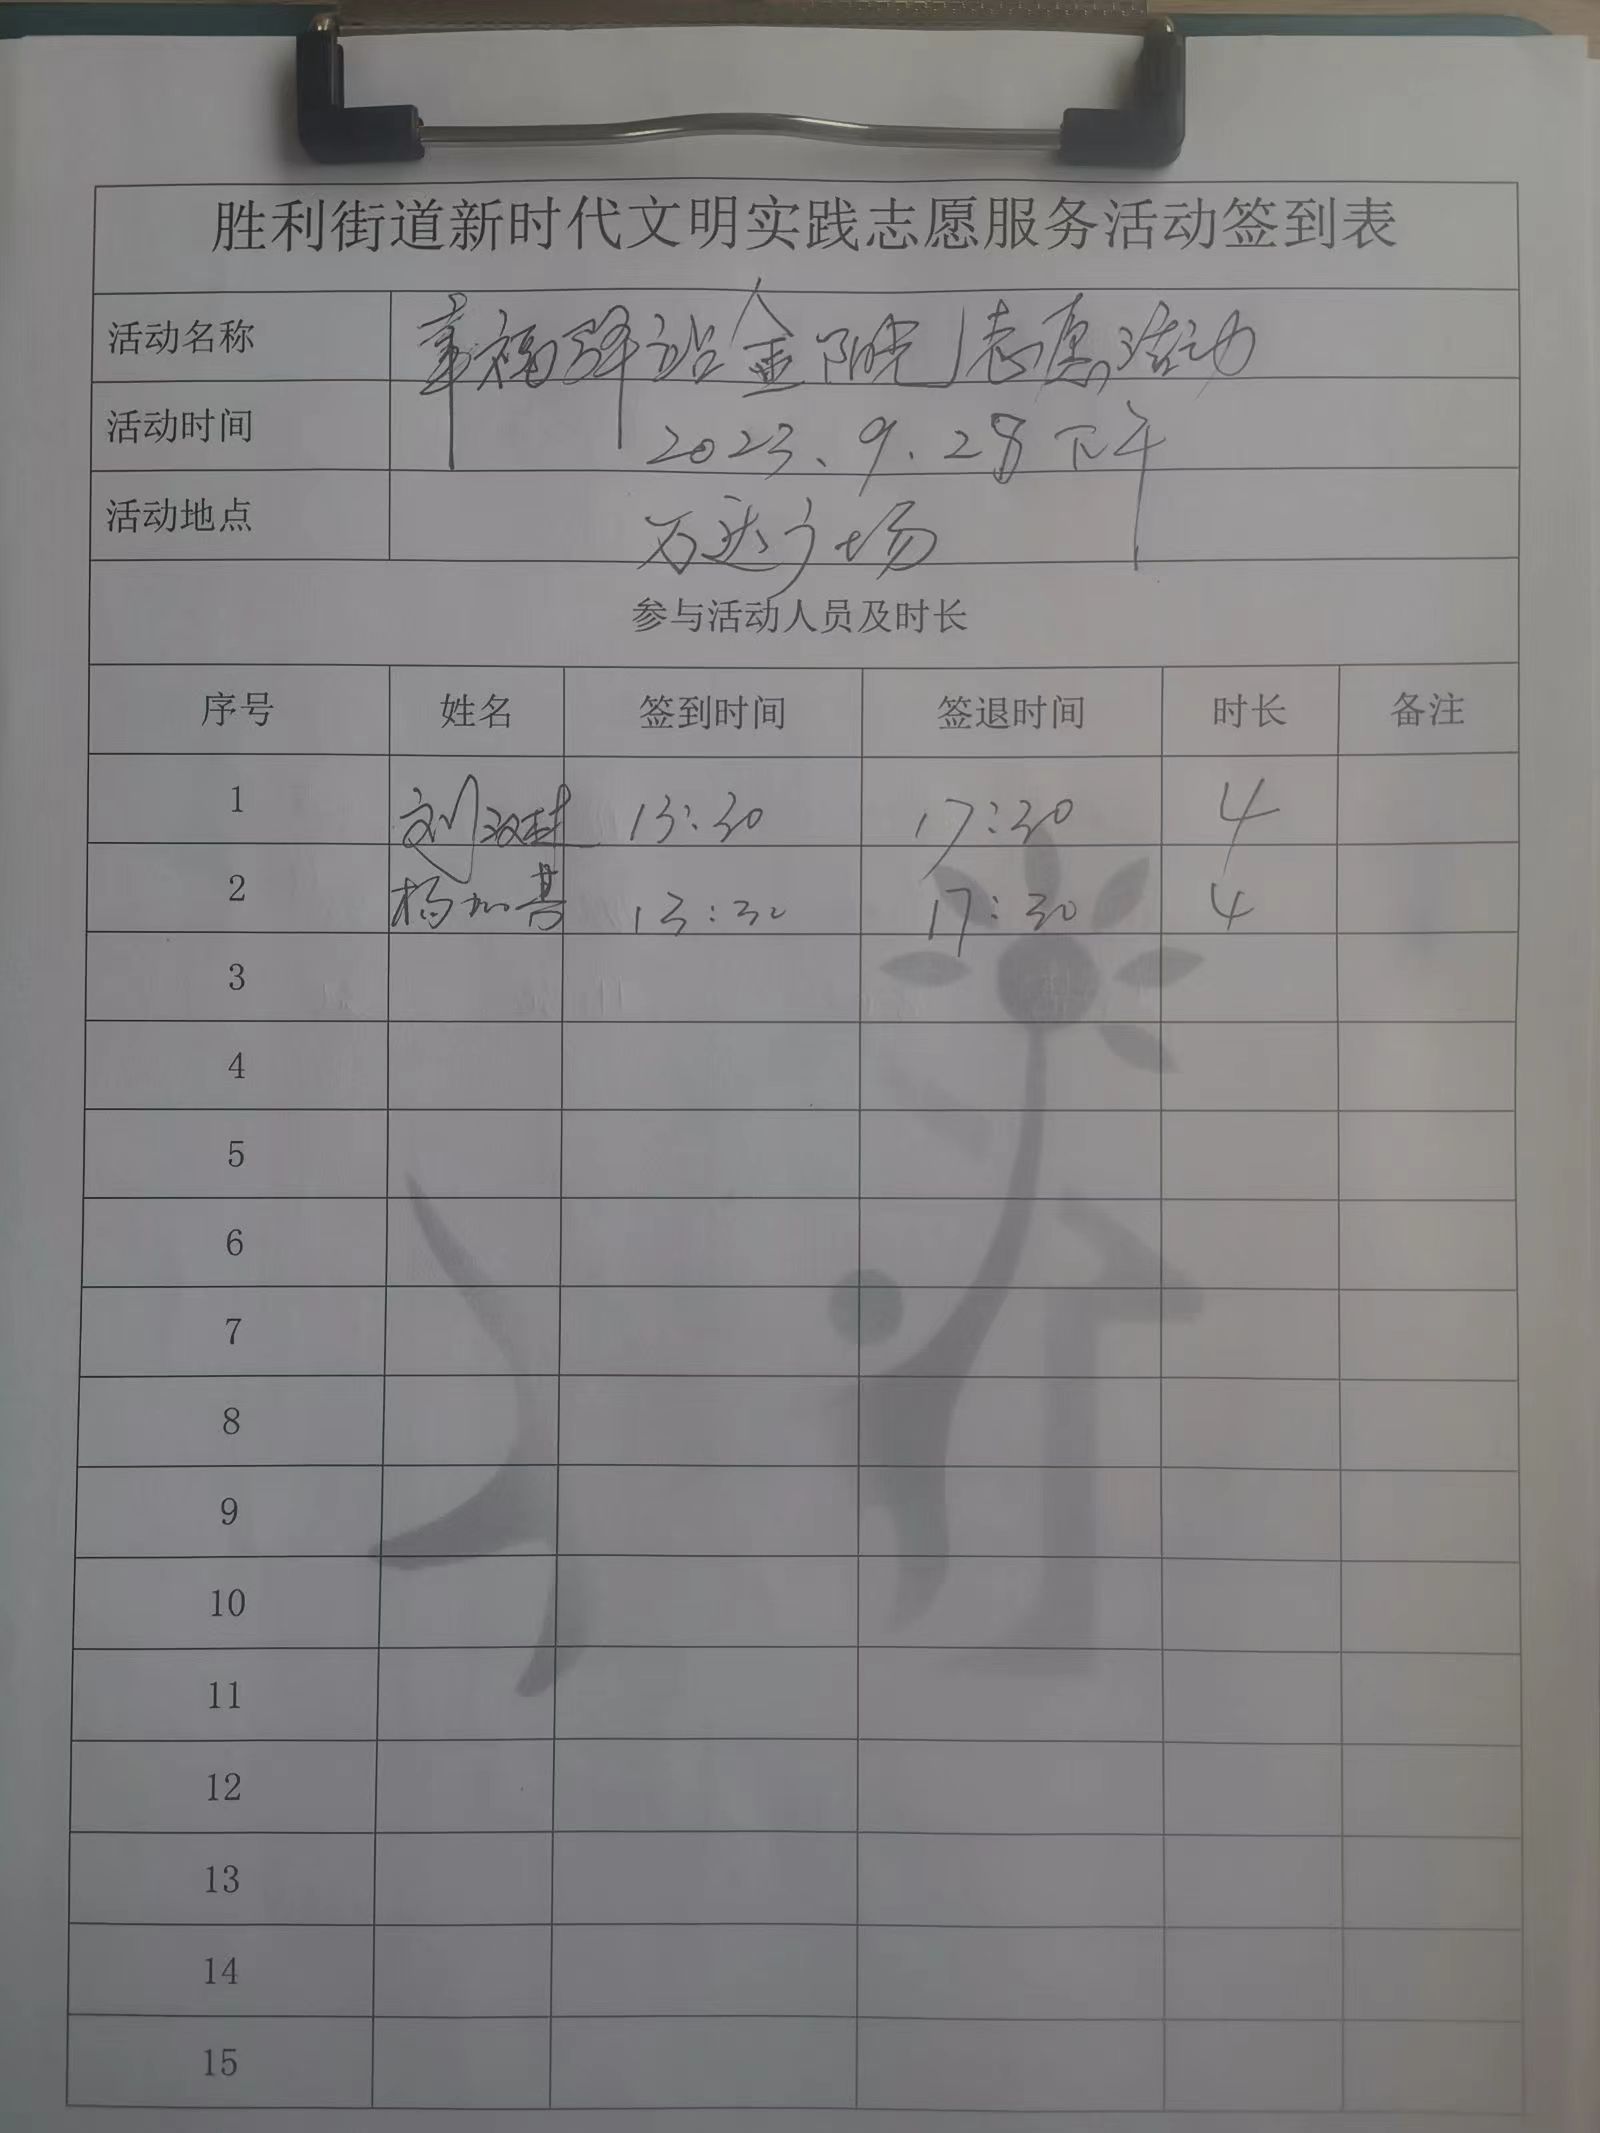 胜利街道新时代文明实践志愿服务活动签到表
活动名称 幸福驿站金阳光志愿活动
活动时间 2023、9.28下午
活动地点 万达广场
参与活动人员及时长
序号 姓名 签到时间 签退时间 时长 备注
1 刘 13:30 17:30 4
2 杨 13:30 17:30 4
3
4
5
6
7
8
9
10
11
12
13
14
15